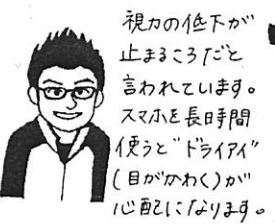 視力の低下が
止まるころだと
言われています。
スマホを長時間
使うと"ドライアイ"
(目がかわく)が
心配になります。